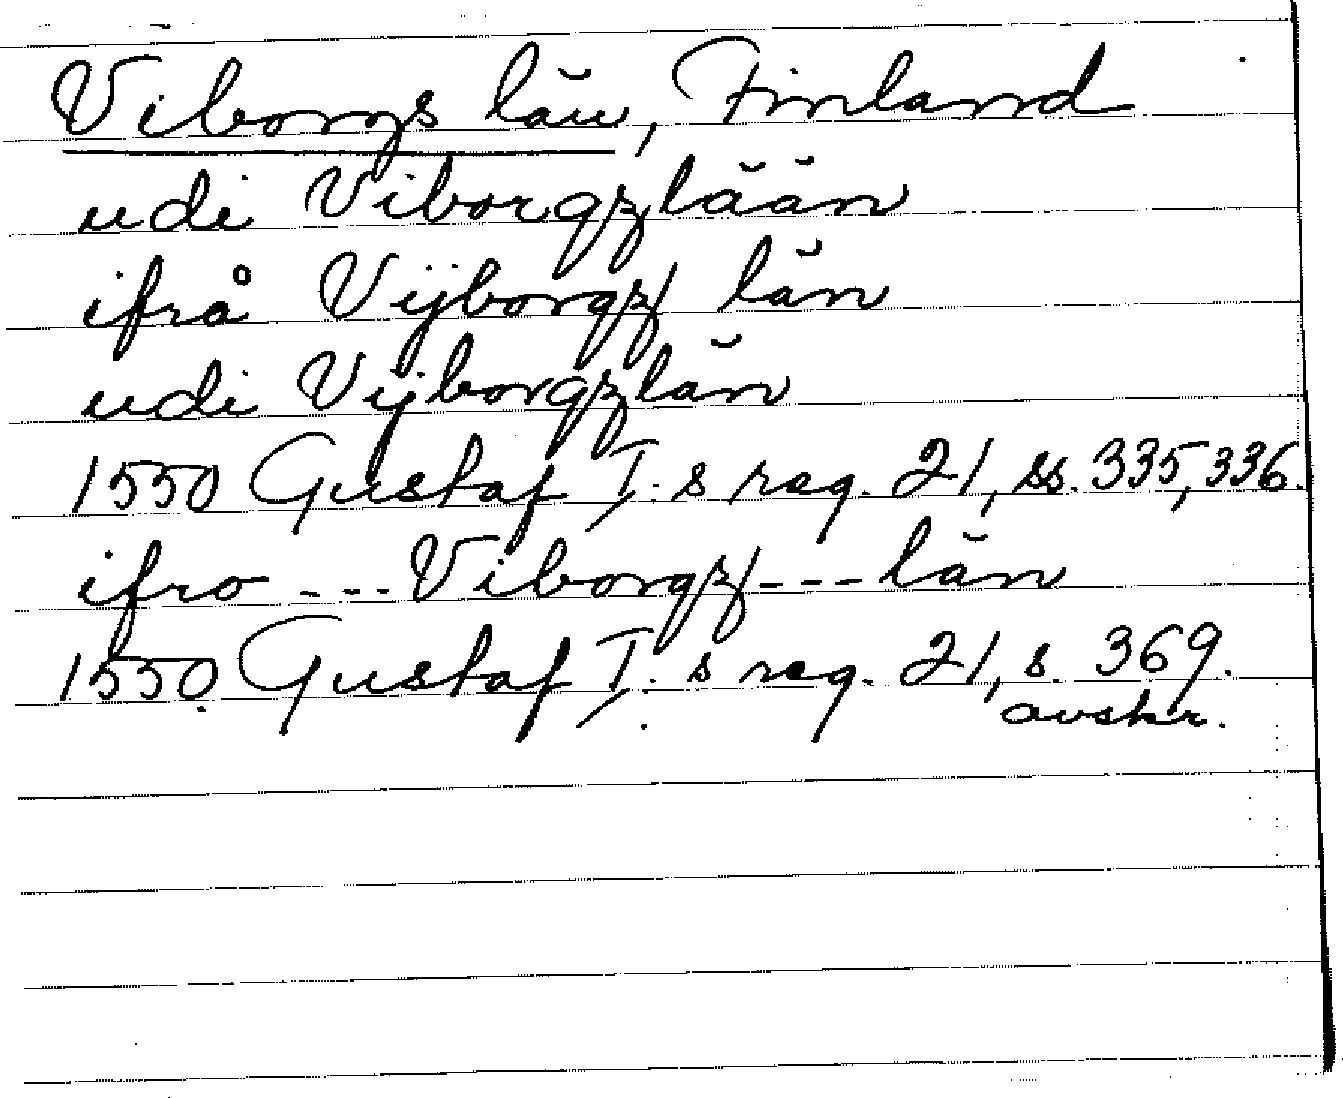 Viborgs län, Finland
udi Viborgzlään
ifrå Vijborgz län
udi Vijborgzlän
1550 Gustaf I:s reg. 21, ss. 335, 336.
ifro --- Viborgz --- län
1550. Gustaf I:s reg. 21, s. 369.
avskr.